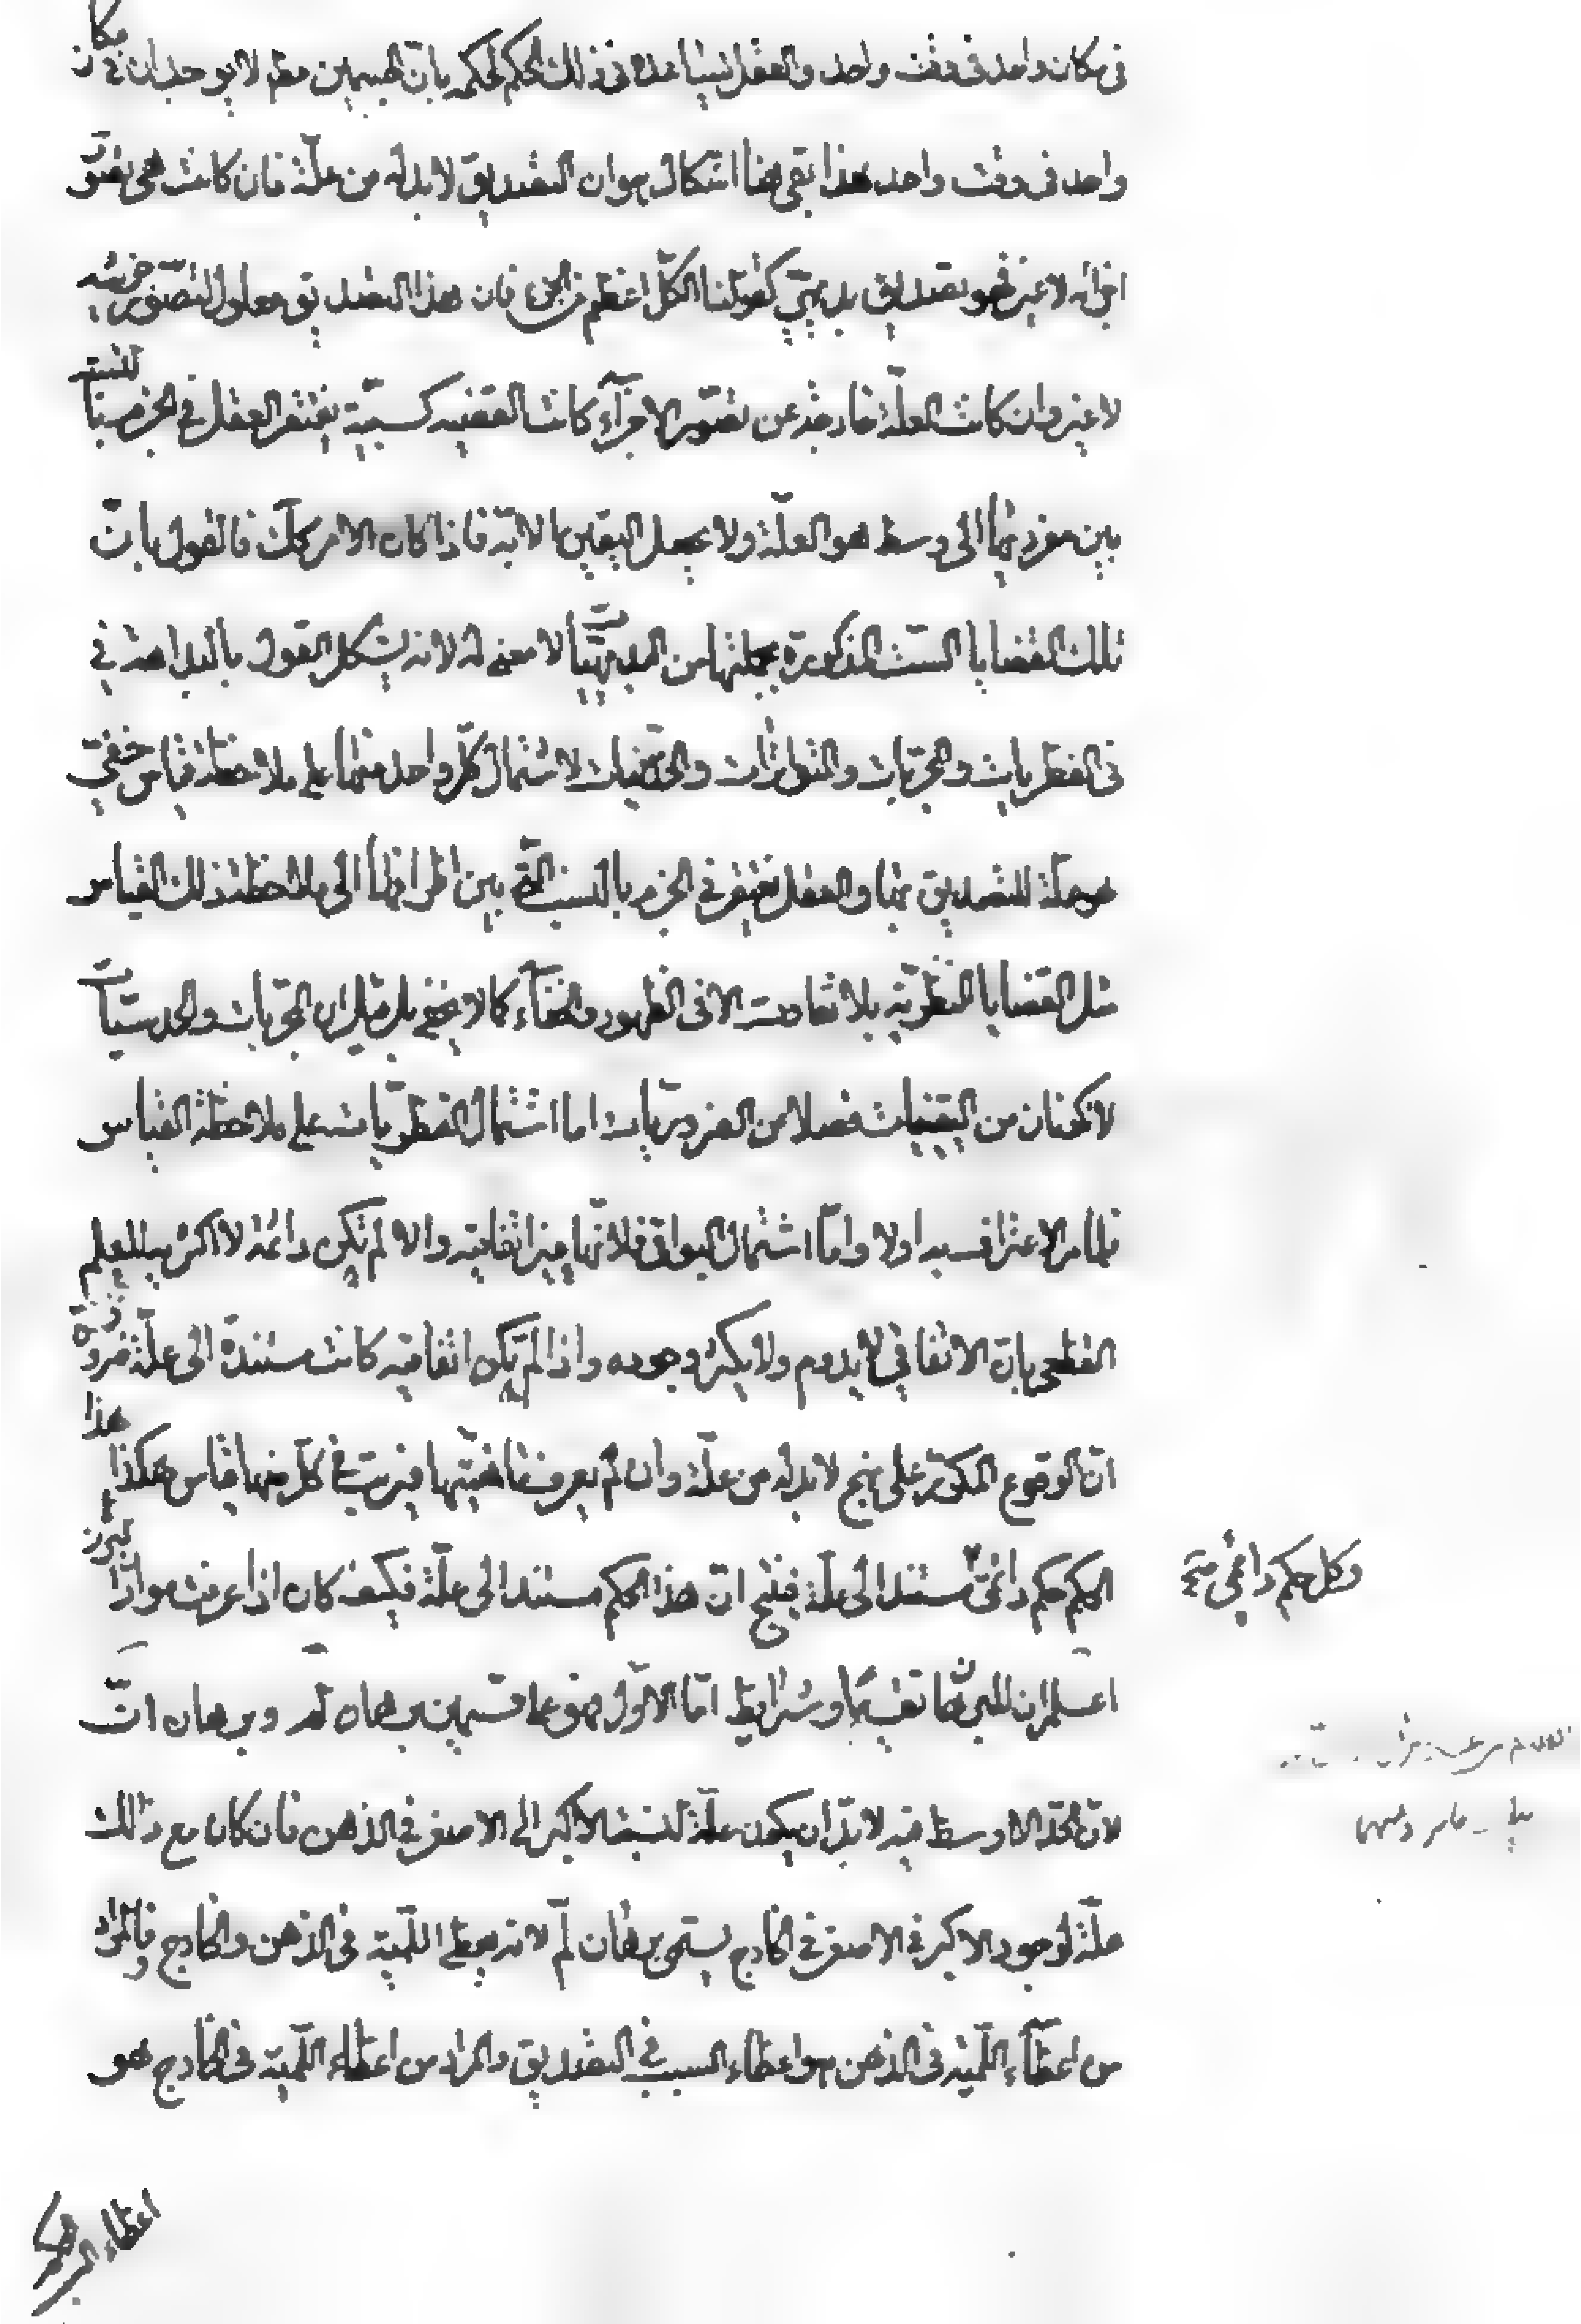 في مكان واحد في وقت واحد والعقل يساعده في ذلك الحكم لحكمه بان الجسمين معا لا يوجدان في مكان
واحد في وقت واحد هذا بقى هنا اشكال هو ان التصديق لابد له من علة فان كانت هي تصور
اجزائه لا غير فهو تصديق بديهي كقولنا الكل اعظم من الجزء فان هذا التصديق معلول لتصور جزئيه
لا غير وان كانت العلة خارجة عن تصور الاجزآء كانت القضيه كسبية يفتقر العقل في الجزم بالنسبة
بين مفرديها الى وسط هو العلة ولا يحصل اليقين الا به فاذا كان الامر كك فالقول بان
تلك القضايا الست المذكورة بجملتها من البديهيات لا معنى له لانه يشكل القول بالبداهة في
في الفطريات والمجربات والمتواترات والحدسيات لاشتمال كل واحد منها على ملاحظة قياس خفي
هو علة للتصديق بها والعقل يفتقر في الجزم بالنسبة التي بين اطرافها الى ملاحظة ذلك القياس
مثل القضايا النظريه بلا تفاوت الا في الظهور والخفآء كما لا يخفى بل قيل ان المجربات والحدسيات
لا تكونان من اليقينيات فضلا من الضروريات اما اشتمال الفطريات على ملاحظة القياس
فلما مر الاعتراف به اولا واما اشتمال البواقي فلانها غير اتفاقيه والا لم تكن دائمة لا اكثريه للعلم
القطعي بان الاتفاقي لا يدوم ولا يكثر وجوده واذا لم تكن اتفاقيه كانت مستندة الى علة ضرورة
ان الوقوع المكرر على نهج لابد له من علة وان لم يعرف ماهيتها فيرتب في كل منها قياس هكذا هذا
الحكم حكم دائمي مستند الى علة فينتج ان هذا الحكم مستند الى علة فكيف كان اذا عرفت مواد البرهان
وكل حكم دائمي
اعلم ان للبرهان تقسيما وشرايط اما الاول فهو على قسمين برهان لم وبرهان ان
لان الحد الاوسط فيه لابد ان يكون علة لنسبة الاكبر الى الاصغر في الذهن فان كان مع ذلك
علة لوجود الاكبر في الاصغر في الخارج يسمى برهان لم لانه يعطى اللمية في الذهن والخارج والمراد
من اعطآء اللمية في الذهن هو اعطاء السبب في التصديق والمراد من اعطاء اللمية في الخارج هو
اعطاء